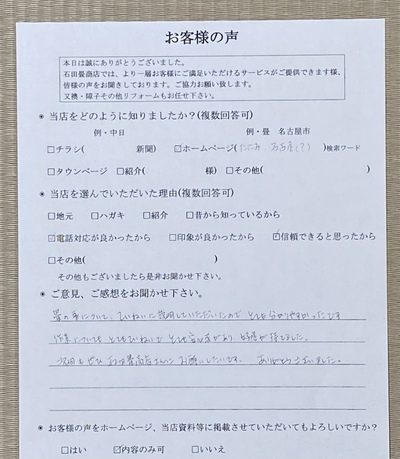 お客様の声
本日は誠にありがとうございました。
石田畳商店では、より一層お客様にご満足いただけるサービスがご提供できます様、
皆様の声をお聞きしております。ご協力お願い致します。
又襖・障子その他リフォームもお任せ下さい。
* 当店をどのように知りましたか?(複数回答可)
例・中日 例・畳 名古屋市
□チラシ( 新聞) ☑ホームページ(たたみ、名古屋(?))検索ワード
□タウンページ □紹介( 様) □その他( )
* 当店を選んでいただいた理由(複数回答可)
□地元 □ハガキ □紹介 □昔から知っているから
☑電話対応が良かったから □印象が良かったから ☑信頼できると思ったから
□その他( )
その他もございましたら是非お聞かせ下さい。
* ご意見、ご感想をお聞かせ下さい。
畳の事について、ていねいに説明していただいたので とても分かりやすかったです
作業についても とてもていねいで とても安心感があり 好感が持てました。
次回もぜひ 石田畳商店さんに お願いしたいです。 ありがとうございました。
* お客様の声をホームページ、当店資料等に掲載させていただいてもよろしいですか?
□はい ☑内容のみ可 □いいえ